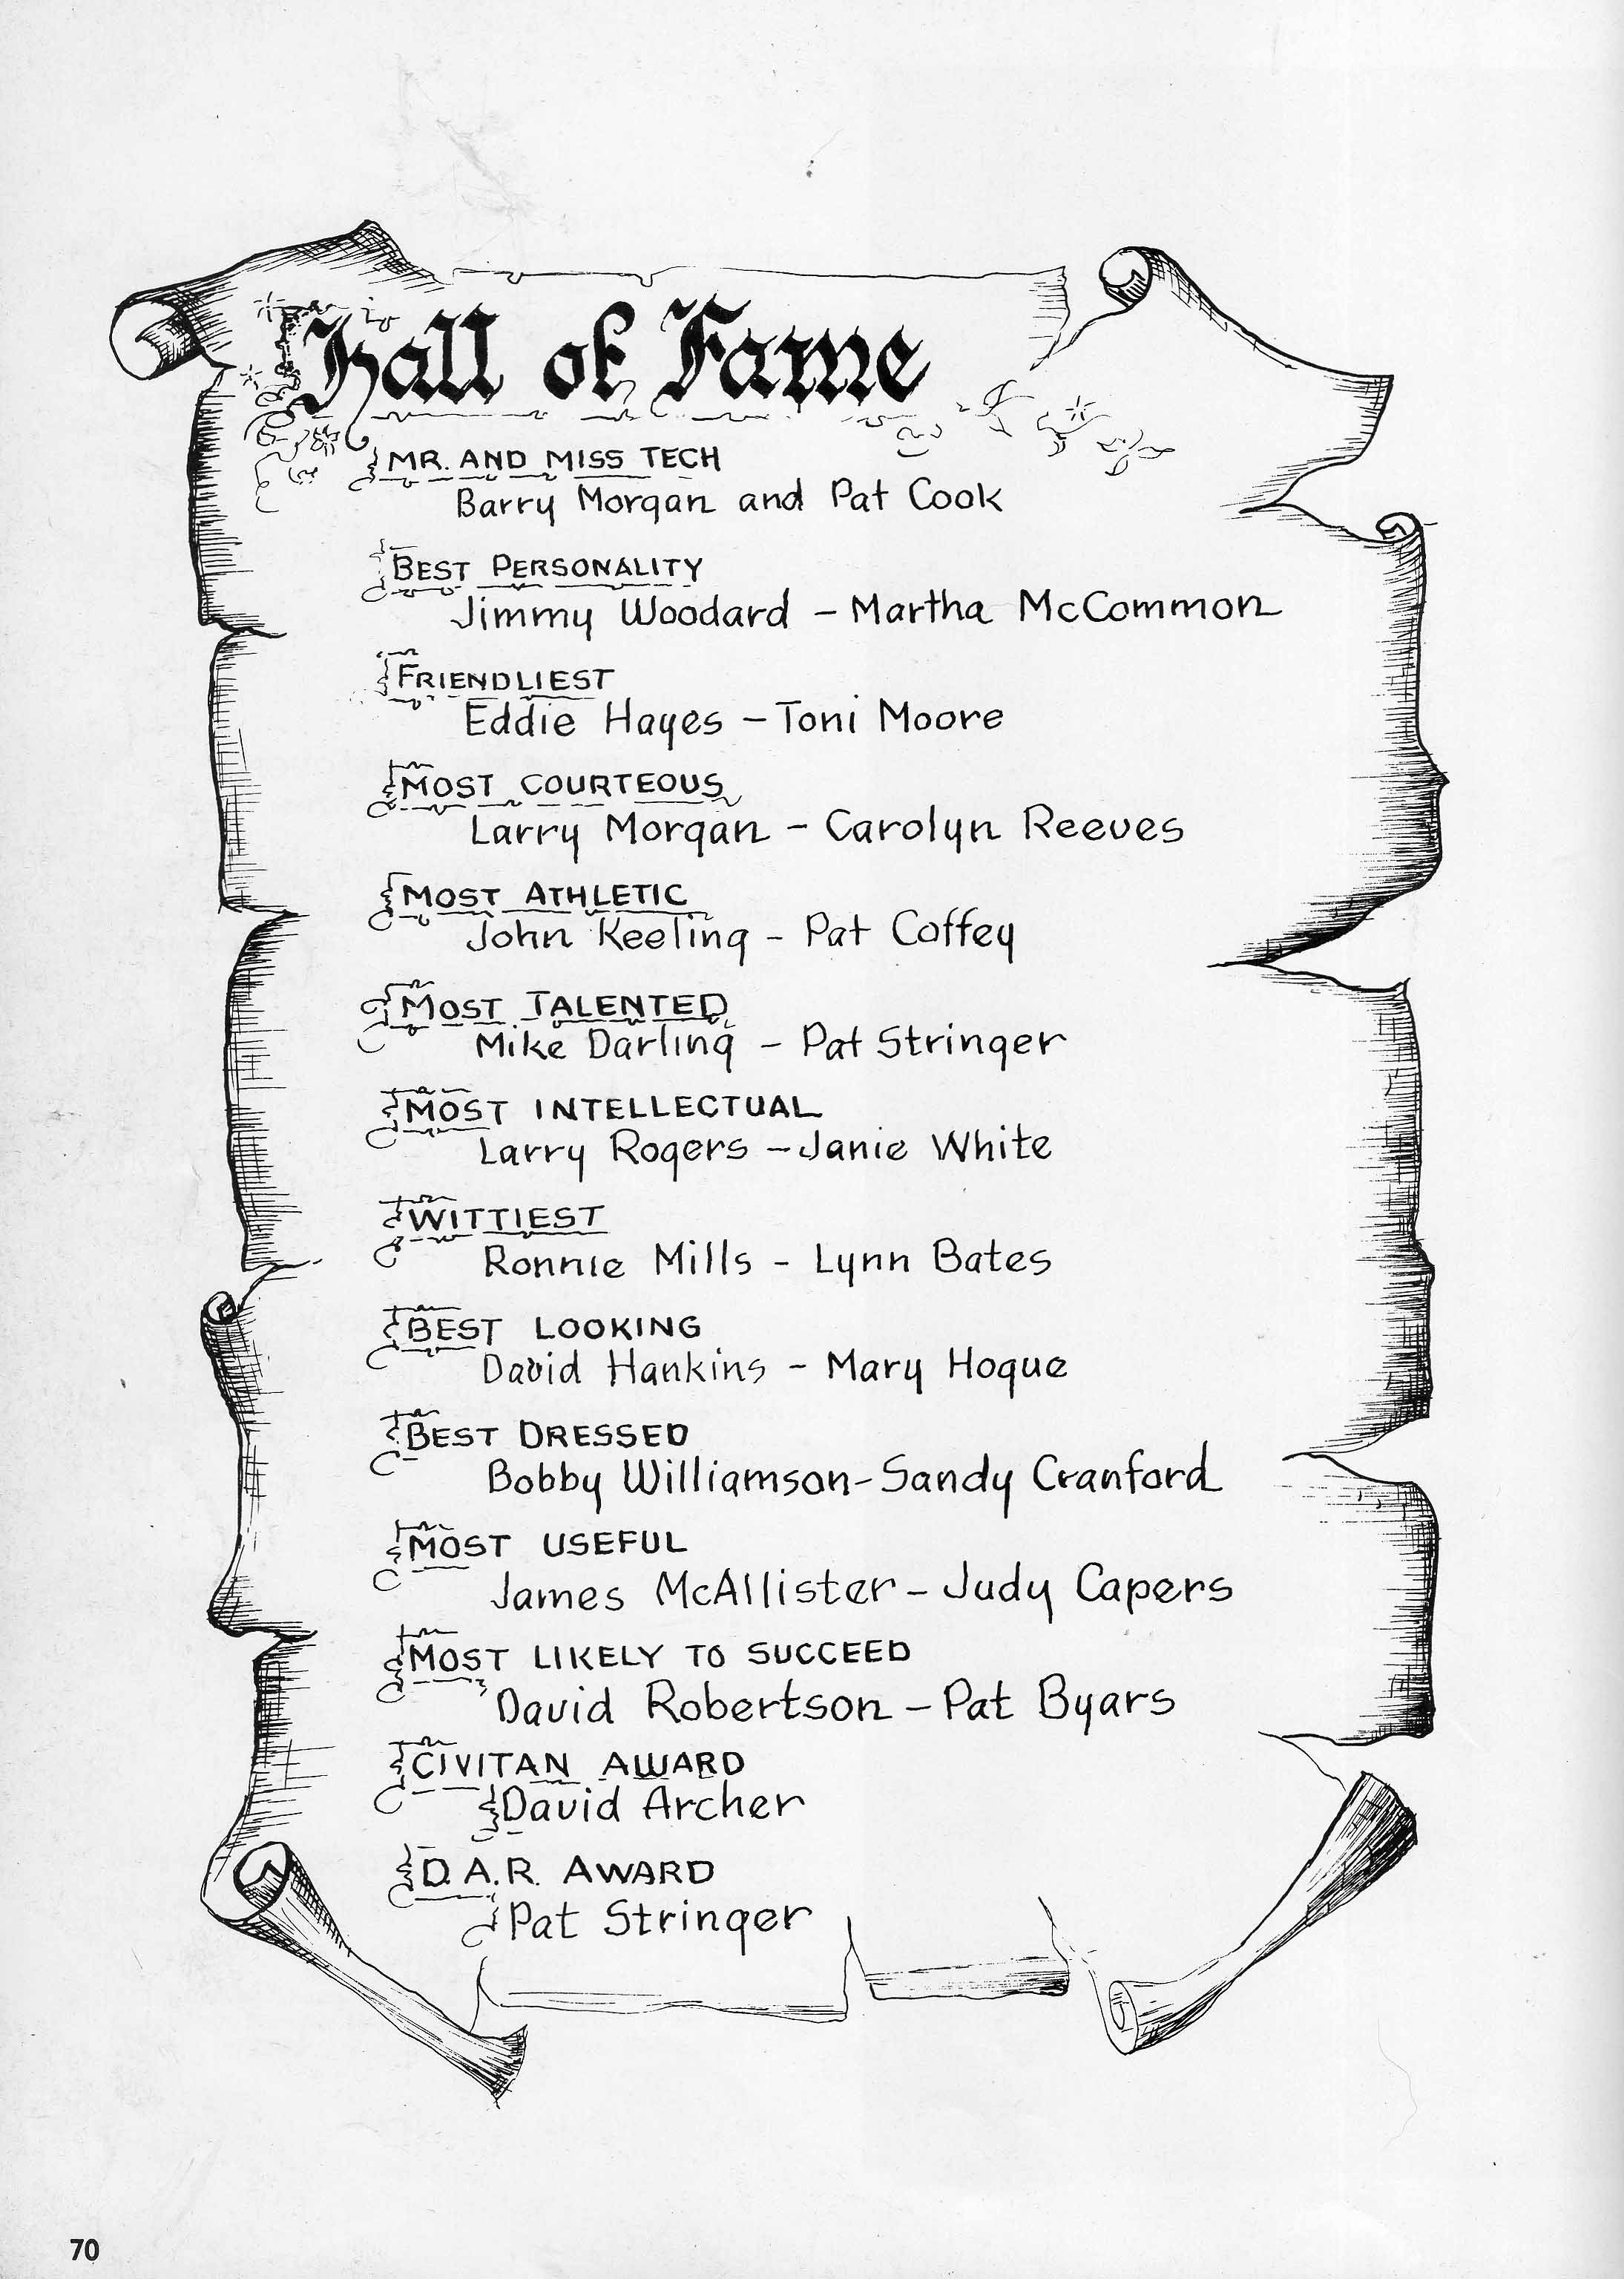 Hall of Fame
MR. AND MISS TECH
Barry Morgan and Pat Cook
BEST PERSONALITY
Jimmy Woodard - Martha McCommon
FRIENDLIEST
Eddie Hayes - Toni Moore
MOST COURTEOUS
Larry Morgan - Carolyn Reeves
MOST ATHLETIC
John Keeling - Pat Coffey
MOST TALENTED
Mike Darling - Pat Stringer
MOST INTELLECTUAL
Larry Rogers - Janie White
WITTIEST
Ronnie Mills - Lynn Bates
BEST LOOKING
David Hankins - Mary Hogue
BEST DRESSED
Bobby Williamson - Sandy Cranford
MOST USEFUL
James McAllister - Judy Capers
MOST LIKELY TO SUCCEED
David Robertson - Pat Byars
CIVITAN AWARD
David Archer
D.A.R. AWARD
Pat Stringer
70